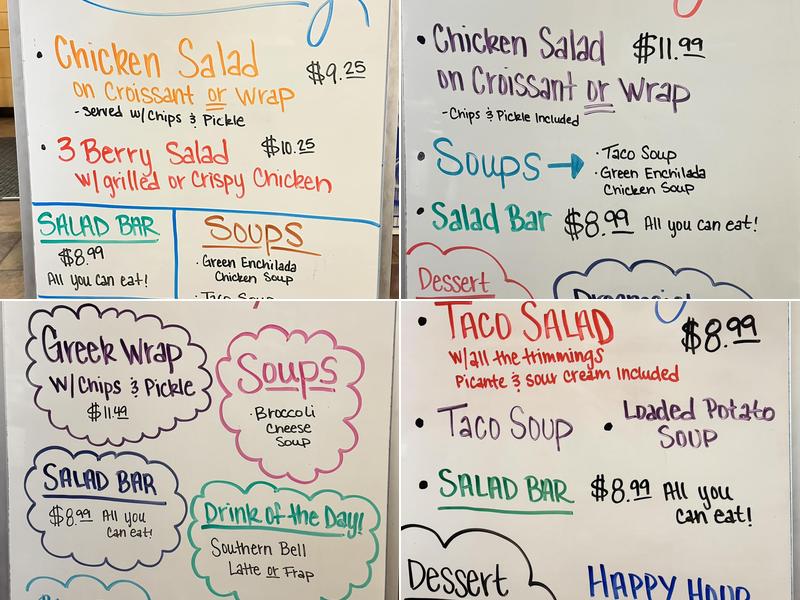 • Chicken Salad $9.25
on Croissant or Wrap
- served w/ Chips & Pickle
• 3 Berry Salad $10.25
w/ grilled or Crispy Chicken
SALAD BAR
$8.99
All you can eat!
SOUPS
· Green Enchilada
Chicken Soup
· Taco Soup
• Chicken Salad $11.99
on Croissant or Wrap
- Chips & Pickle Included
• Soups → · Taco Soup
· Green Enchilada
Chicken Soup
• Salad Bar $8.99 All you can eat!
Dessert
Greek Wrap
W/ Chips & Pickle
$11.49
Soups
· Broccoli
Cheese
Soup
SALAD BAR
$8.99 All you
can eat!
Drink of the Day!
Southern Bell
Latte or Frap
• TACO SALAD $8.99
w/ all the trimmings
Picante & sour cream Included
• Taco Soup • Loaded Potato
SOUP
• SALAD BAR $8.99 All you
can eat!
Dessert
HAPPY HOUR